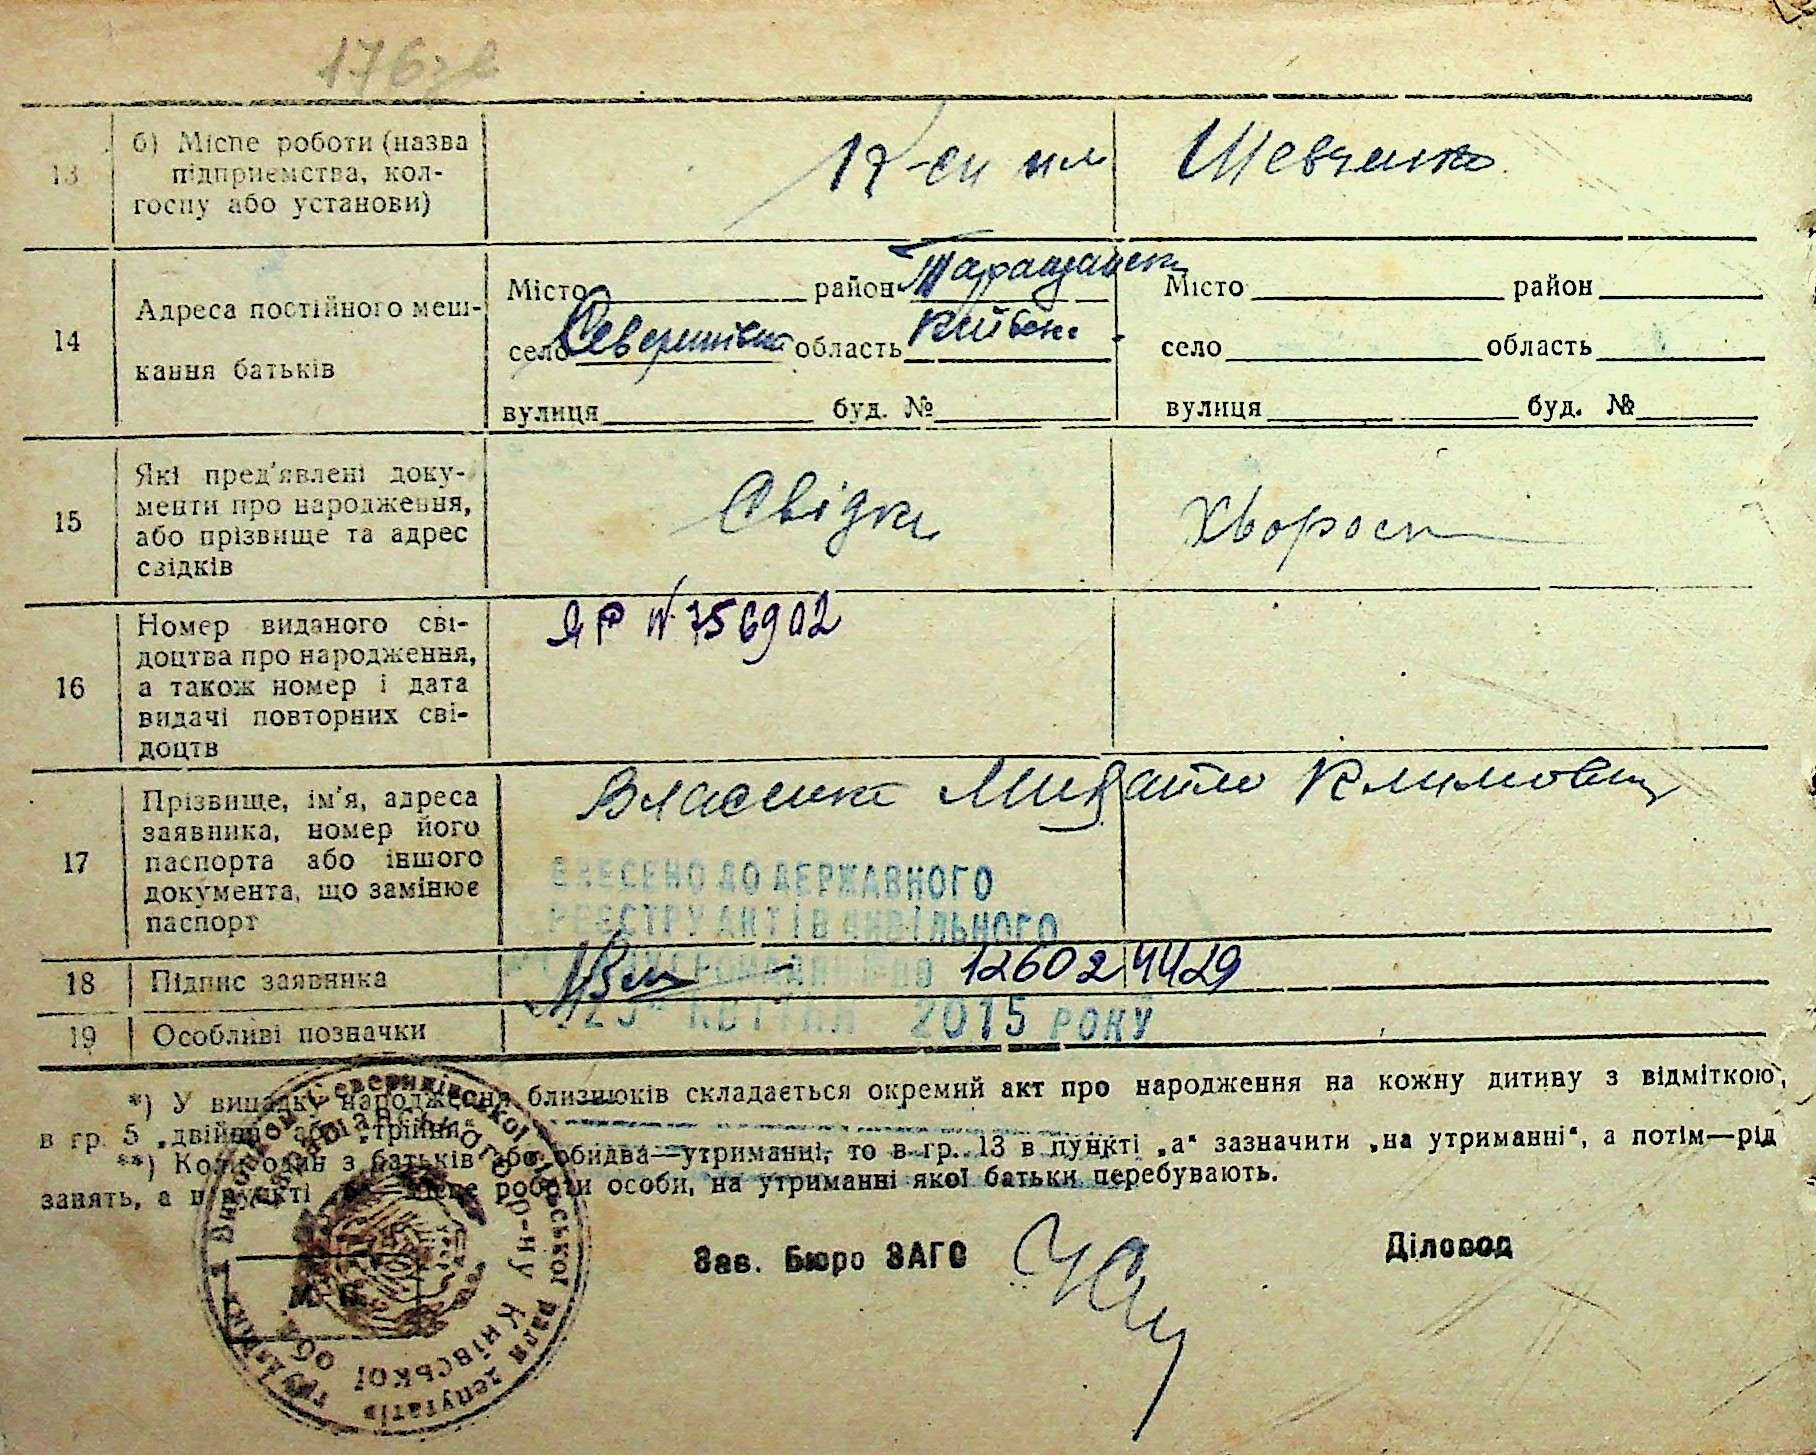 176зв
13
б) Місце роботи (назва
підприємства, кол-
госпу або установи)
Шевченко
14
Адреса постійного меш-
кання батьків
Місто район Таращанськ
село Северинівка область Київськ.
вулиця буд. №
Місто район
село область
вулиця буд. №
15
Які пред'явлені доку-
менти про народження,
або прізвище та адрес
свідків
Свідки
Хворост
16
Номер виданого сві-
доцтва про народження,
а також номер і дата
видачі повторних сві-
доцтв
ЯР № 756902
17
Прізвище, ім'я, адреса
заявника, номер його
паспорта або іншого
документа, що замінює
паспорт
Власенко Михайло Климович
ВНЕСЕНО ДО ДЕРЖАВНОГО
РЕЄСТРУ АКТІВ ЦИВІЛЬНОГО
18
Підпис заявника
126024429
19
Особливі позначки
КВІТНЯ 2015 РОКУ
*) У випадку народження близнюків складається окремий акт про народження на кожну дитину з відміткою,
в гр. 5 „двійня" або „трійня"
**) Коли один з батьків або обидва—утриманні, то в гр. 13 в пункті „а" зазначити „на утриманні", а потім—рід
занять, а в пункті місце роботи особи, на утриманні якої батьки перебувають.
Зав. Бюро ЗАГС
Діловод
Виконком Северинівської сільської ради депутатів трудящих
Таращанського р-ну Київської обл.